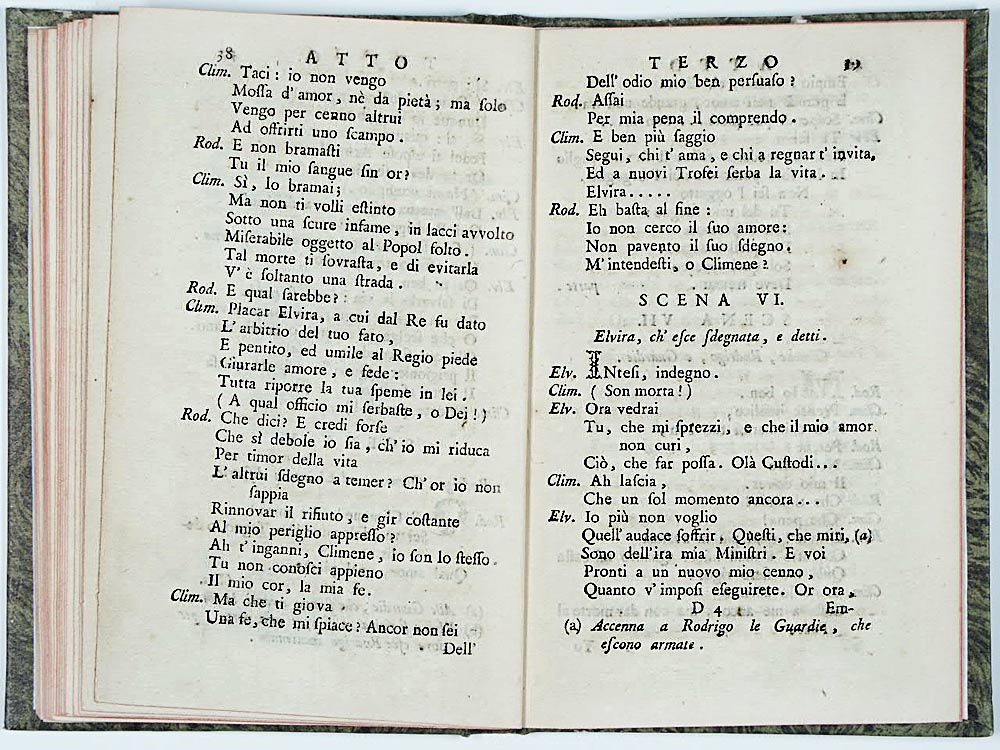 38 ATTO
Clim. Taci: io non vengo
Mossa d'amor, nè da pietà; ma solo
Vengo per cenno altrui
Ad offrirti uno scampo.
Rod. E non bramasti
Tu il mio sangue sin or?
Clim. Sì, lo bramai;
Ma non ti volli estinto
Sotto una scure infame, in lacci avvolto
Miserabile oggetto al Popol folto.
Tal morte ti sovrasta, e di evitarla
V'è soltanto una strada.
Rod. E qual sarebbe?
Clim. Placar Elvira, a cui dal Re fu dato
L'arbitrio del tuo fato,
E pentito, ed umile al Regio piede
Giurarle amore, e fede:
Tutta riporre la tua speme in lei.
(A qual officio mi serbaste, o Dei!)
Rod. Che dici? E credi forse
Che sì debole io sia, ch'io mi riduca
Per timor della vita
L'altrui sdegno a temer? Ch'or io non
sappia
Rinnovar il rifiuto, e gir costante
Al mio periglio appresso?
Ah t'inganni, Climene, io son lo stesso.
Tu non conosci appieno
Il mio cor, la mia fe.
Clim. Ma che ti giova
Una fe, che mi spiace? Ancor non sei
Dell'
TERZO
Dell'odio mio ben persuaso?
Rod. Assai
Per mia pena il comprendo.
Clim. E ben più saggio
Segui, chi t'ama, e chi a regnar t'invita,
Ed a nuovi Trofei serba la vita.
Elvira.....
Rod. Eh basta al fine:
Io non cerco il suo amore:
Non pavento il suo sdegno.
M'intendesti, o Climene?
SCENA VI.
Elvira, ch'esce sdegnata, e detti.
Elv. INtesi, indegno.
Clim. (Son morta!)
Elv. Ora vedrai
Tu, che mi sprezzi, e che il mio amor
non curi,
Ciò, che far possa. Olà Custodi...
Clim. Ah lascia,
Che un sol momento ancora...
Elv. Io più non voglio
Quell'audace soffrir. Questi, che miri, (a)
Sono dell'ira mia Ministri. E voi
Pronti a un nuovo mio cenno,
Quanto v'imposi eseguirete. Or ora,
D 4 Em-
(a) Accenna a Rodrigo le Guardie, che
escono armate.